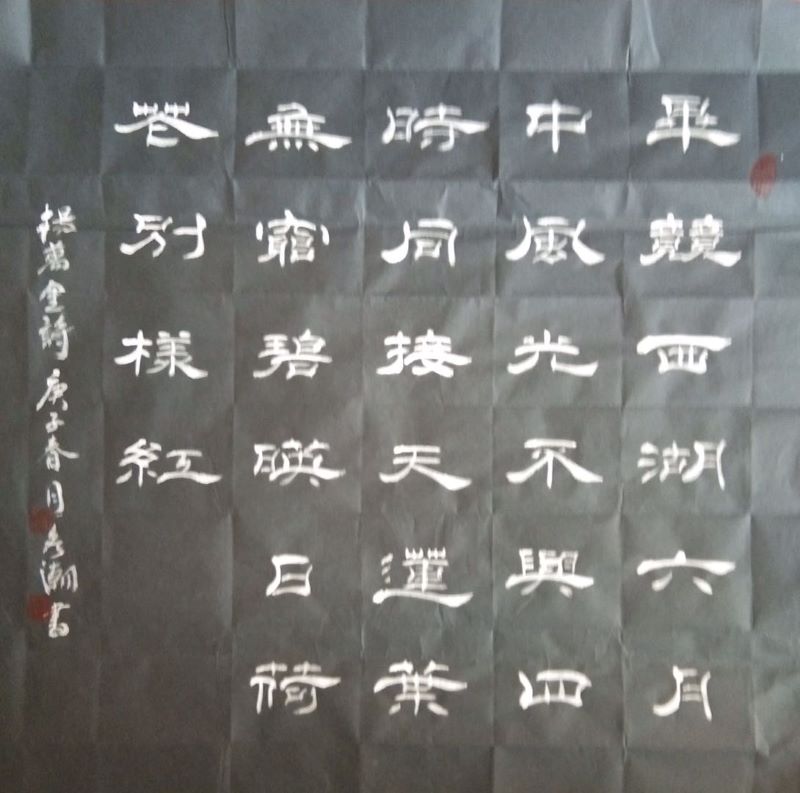 畢競西湖六月
中風光不與四
時同接天蓮葉
無窮碧暎日荷
花別樣紅
楊萬里詩 庚子春月 潮書